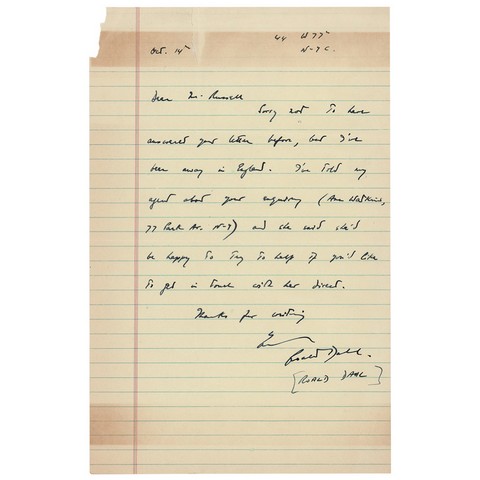 44 W 77th
Oct. 14th N-Y C.
Dear Mr. Russell
Sorry not to have
answered your letter before, but I've
been away in England. I've told my
agent about your enquiry (Ann Watkins,
77 Park Av. N-Y) and she said she'd
be happy to try to help if you'd like
to get in touch with her direct.
Thanks for writing
Roald Dahl.
[ROALD DAHL]